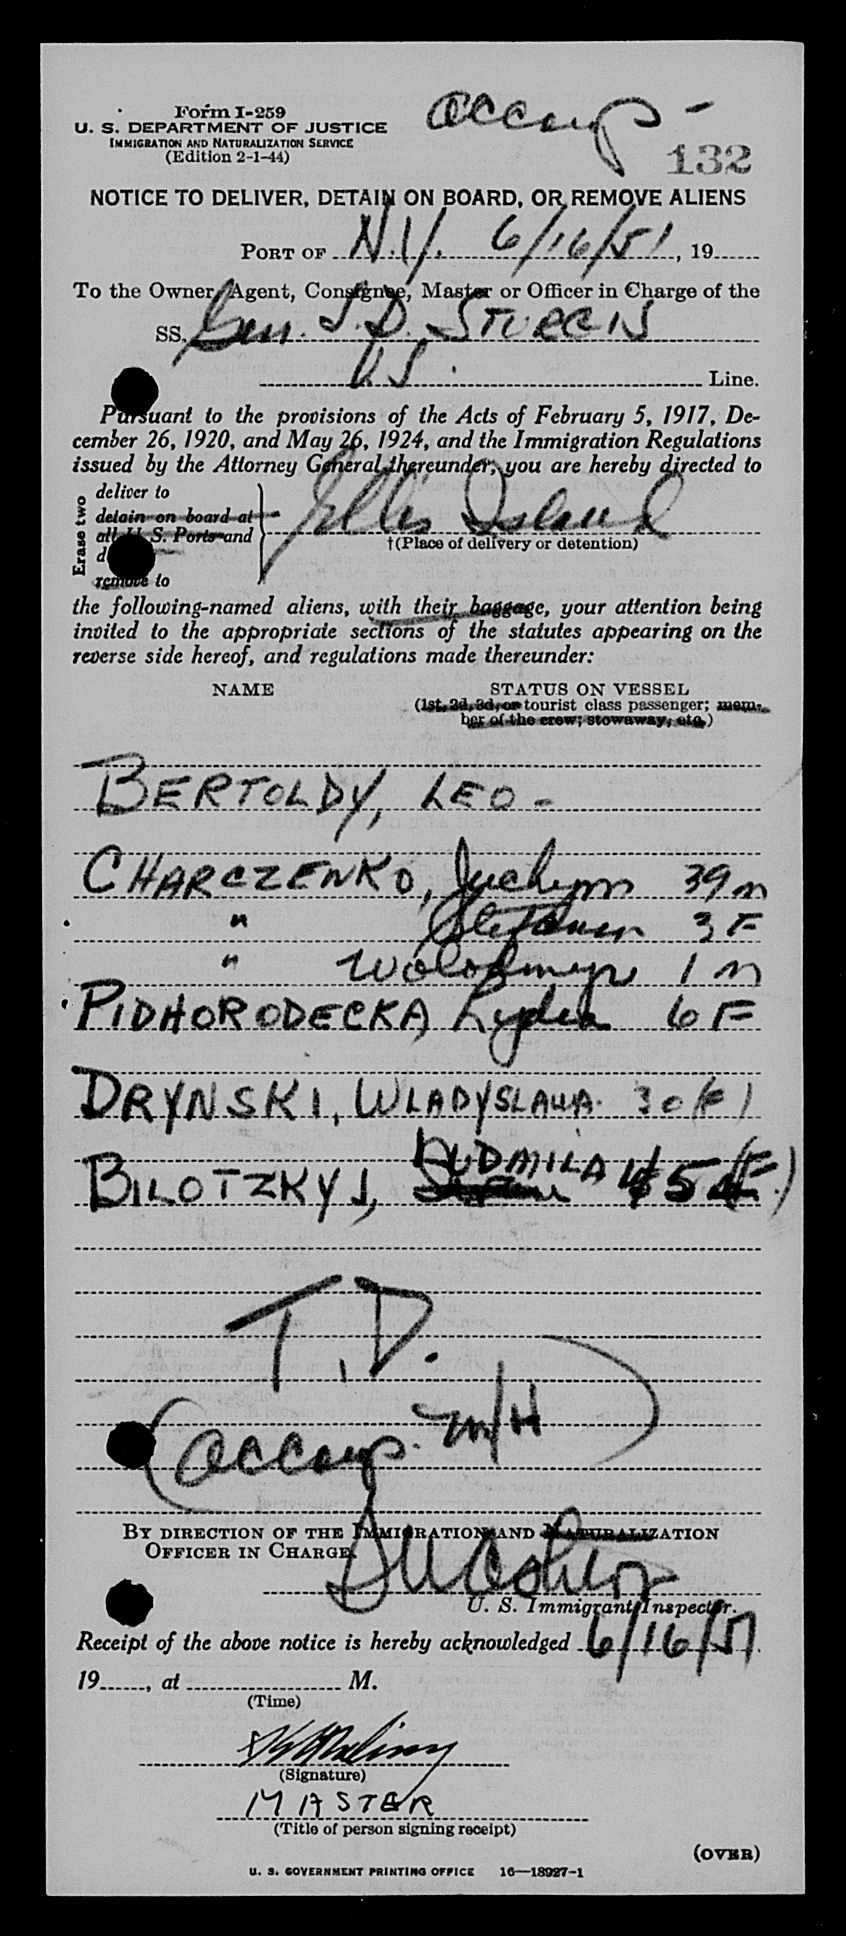 Form I-259
U. S. DEPARTMENT OF JUSTICE
IMMIGRATION AND NATURALIZATION SERVICE
(Edition 2-1-44)
accomp -
132
NOTICE TO DELIVER, DETAIN ON BOARD, OR REMOVE ALIENS
PORT OF N.Y. 6/16/51, 19
To the Owner, Agent, Consignee, Master or Officer in Charge of the
SS. Gen. S.D. STURGIS
U.S. Line.
Pursuant to the provisions of the Acts of February 5, 1917, De-
cember 26, 1920, and May 26, 1924, and the Immigration Regulations
issued by the Attorney General thereunder, you are hereby directed to
Erase two
deliver to
detain on board at
all U. S. Ports and
remove to
Ellis Island
†(Place of delivery or detention)
the following-named aliens, with their baggage, your attention being
invited to the appropriate sections of the statutes appearing on the
reverse side hereof, and regulations made thereunder:
NAME STATUS ON VESSEL
(1st, 2d, 3d, or tourist class passenger; mem-
ber of the crew; stowaway, etc.)
BERTOLDY, LEO -
CHARCZENKO, Juchym 39 m
" 3 F
" Wolodymyr 1 m
PIDHORODECKA, Lydia 6 F
DRYNSKI, WLADYSLAWA 30 (F)
BILOTZKYJ, LUDMILA 5 (F)
T.D.
(accomp. m/H)
BY DIRECTION OF THE IMMIGRATION AND NATURALIZATION
OFFICER IN CHARGE.
U. S. Immigrant Inspector.
Receipt of the above notice is hereby acknowledged 6/16/51
19, at M.
(Time)
(Signature)
MASTER
(Title of person signing receipt)
(OVER)
U. S. GOVERNMENT PRINTING OFFICE 16—18927-1